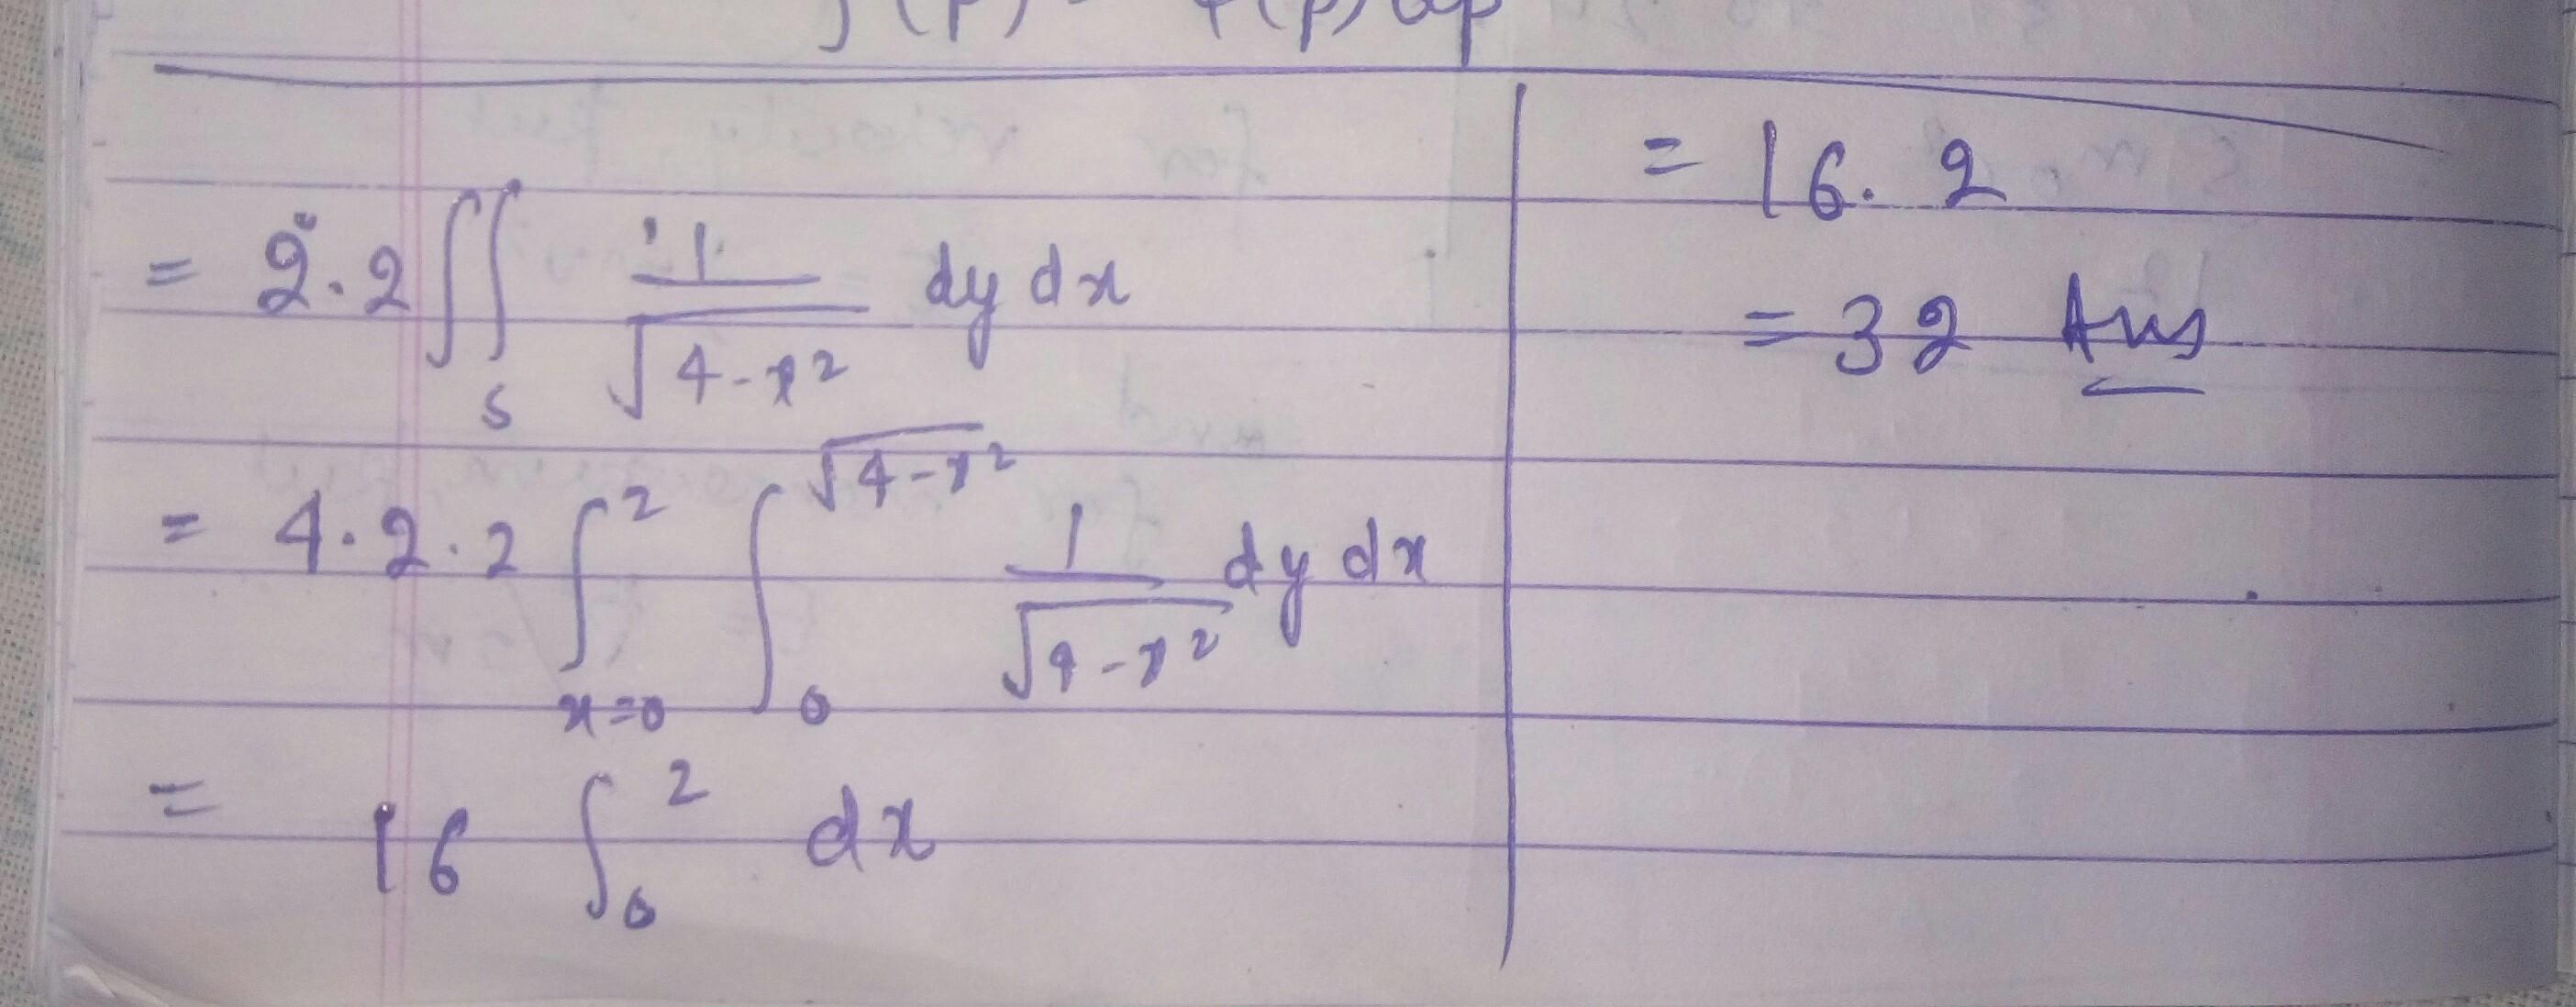 = 2.2 ∫∫_S 1/√(4-x²) dy dx
= 4.2.2 ∫_{x=0}^{2} ∫_{0}^{√(4-x²)} 1/√(4-x²) dy dx
= 16 ∫_0^2 dx
= 16. 2
= 32 Ans